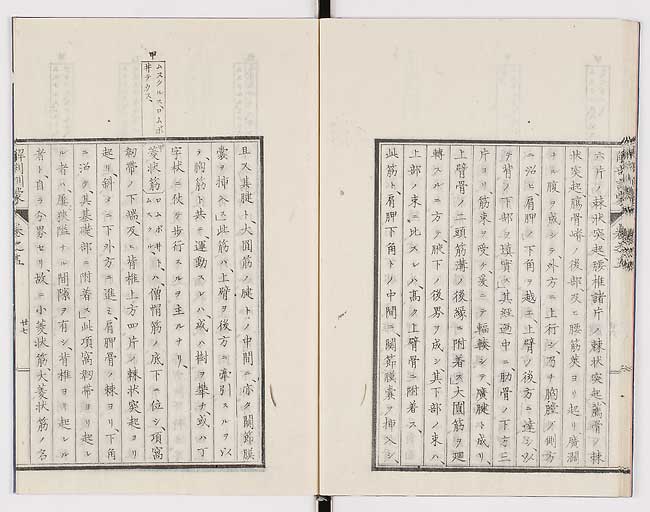 六片ノ棘状突起、腰椎諸片ノ棘状突起、薦骨ノ棘
状突起、髂骨嵴ノ後部及ヒ腰筋葉ヨリ起リ、廣濶
ナル腹ヲ成シ、ラ外方ニ上行シ、乃チ胸膛ノ側方
ニ沿ヒ、肩胛ノ下角ヲ越エ、上臂ノ後方ニ達シ、以
テ臂ノ下部ヲ填實ス、其経過中ニ肋骨ノ下方三
片ヨリ、筋束ヲ受ケ、爰ニテ輻輳シ、ヲ廣腱ト成リ、
上臂骨ノ二頭筋溝ノ後縁ニ附着ス、大圓筋ヲ廻
轉スルニ方テ、腋下ノ後界ヲ成シ、其下部ノ束ハ、
上部ノ束ニ比スレハ、高ク上臂骨ニ附着ス、
此筋ト、肩胛下角トノ中間ニ、関節膜嚢ヲ挿入シ、
且ス其腱ト、大圓筋ノ腱トノ中間ニ、亦タ関節膜
嚢ヲ挿入ス、此筋ハ、上臂ヲ後方ニ牽引スルヲ以
テ、胸筋ト共ニ運動スレハ、或ハ樹ヲ攀チ或ハ丁
字杖ニ依テ歩行スルヲ主ルナリ、
菱状筋ロムボ井ト、ムスクル、ハ僧帽筋ノ底下ニ位シ、項窩
靭帯ノ下端及ヒ脊椎上方四片ノ棘状突起ヨリ
起リ、斜メニ下外方ニ進ミ、肩胛骨ノ棘ヨリ、下角
ニ沿ク其基礎部ニ附着ス、此項窩靭帯ヨリ起レ
ル者ハ、層狭隘ナル間隙ヲ有シ、脊椎ヨリ起レル
者ト、自ラ分界セリ、故ニ小菱状筋大菱状筋ノ名
甲
ムスクルス、ロムボ
井デウス、
解剖訓蒙
巻之五
廿七